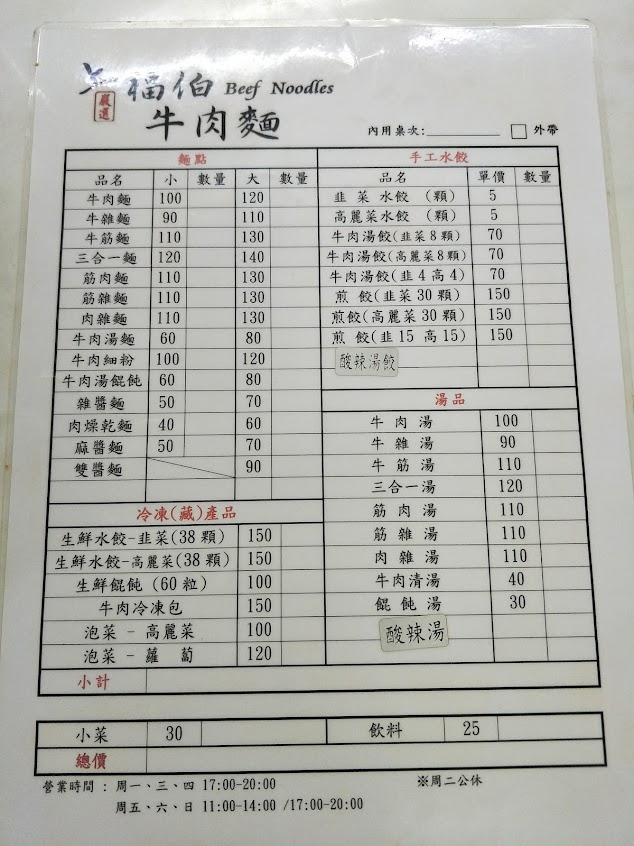 嚴選
福伯 Beef Noodles
牛肉麵
內用桌次:________ □ 外帶
麵點
品名 小 數量 大 數量
牛肉麵 100 120
牛雜麵 90 110
牛筋麵 110 130
三合一麵 120 140
筋肉麵 110 130
筋雜麵 110 130
肉雜麵 110 130
牛肉湯麵 60 80
牛肉細粉 100 120
牛肉湯餛飩 60 80
雜醬麵 50 70
肉燥乾麵 40 60
麻醬麵 50 70
雙醬麵 90
冷凍(藏)產品
生鮮水餃-韭菜(38顆) 150
生鮮水餃-高麗菜(38顆) 150
生鮮餛飩 (60粒) 100
牛肉冷凍包 150
泡菜 - 高麗菜 100
泡菜 - 蘿蔔 120
手工水餃
品名 單價 數量
韭菜水餃 (顆) 5
高麗菜水餃 (顆) 5
牛肉湯餃(韭菜8顆) 70
牛肉湯餃(高麗菜8顆) 70
牛肉湯餃(韭4高4) 70
煎餃(韭菜30顆) 150
煎餃(高麗菜30顆) 150
煎餃(韭15高15) 150
酸辣湯餃
湯品
牛肉湯 100
牛雜湯 90
牛筋湯 110
三合一湯 120
筋肉湯 110
筋雜湯 110
肉雜湯 110
牛肉清湯 40
餛飩湯 30
酸辣湯
小計
小菜 30 飲料 25
總價
營業時間 : 周一、三、四 17:00-20:00 ※周二公休
周五、六、日 11:00-14:00 /17:00-20:00